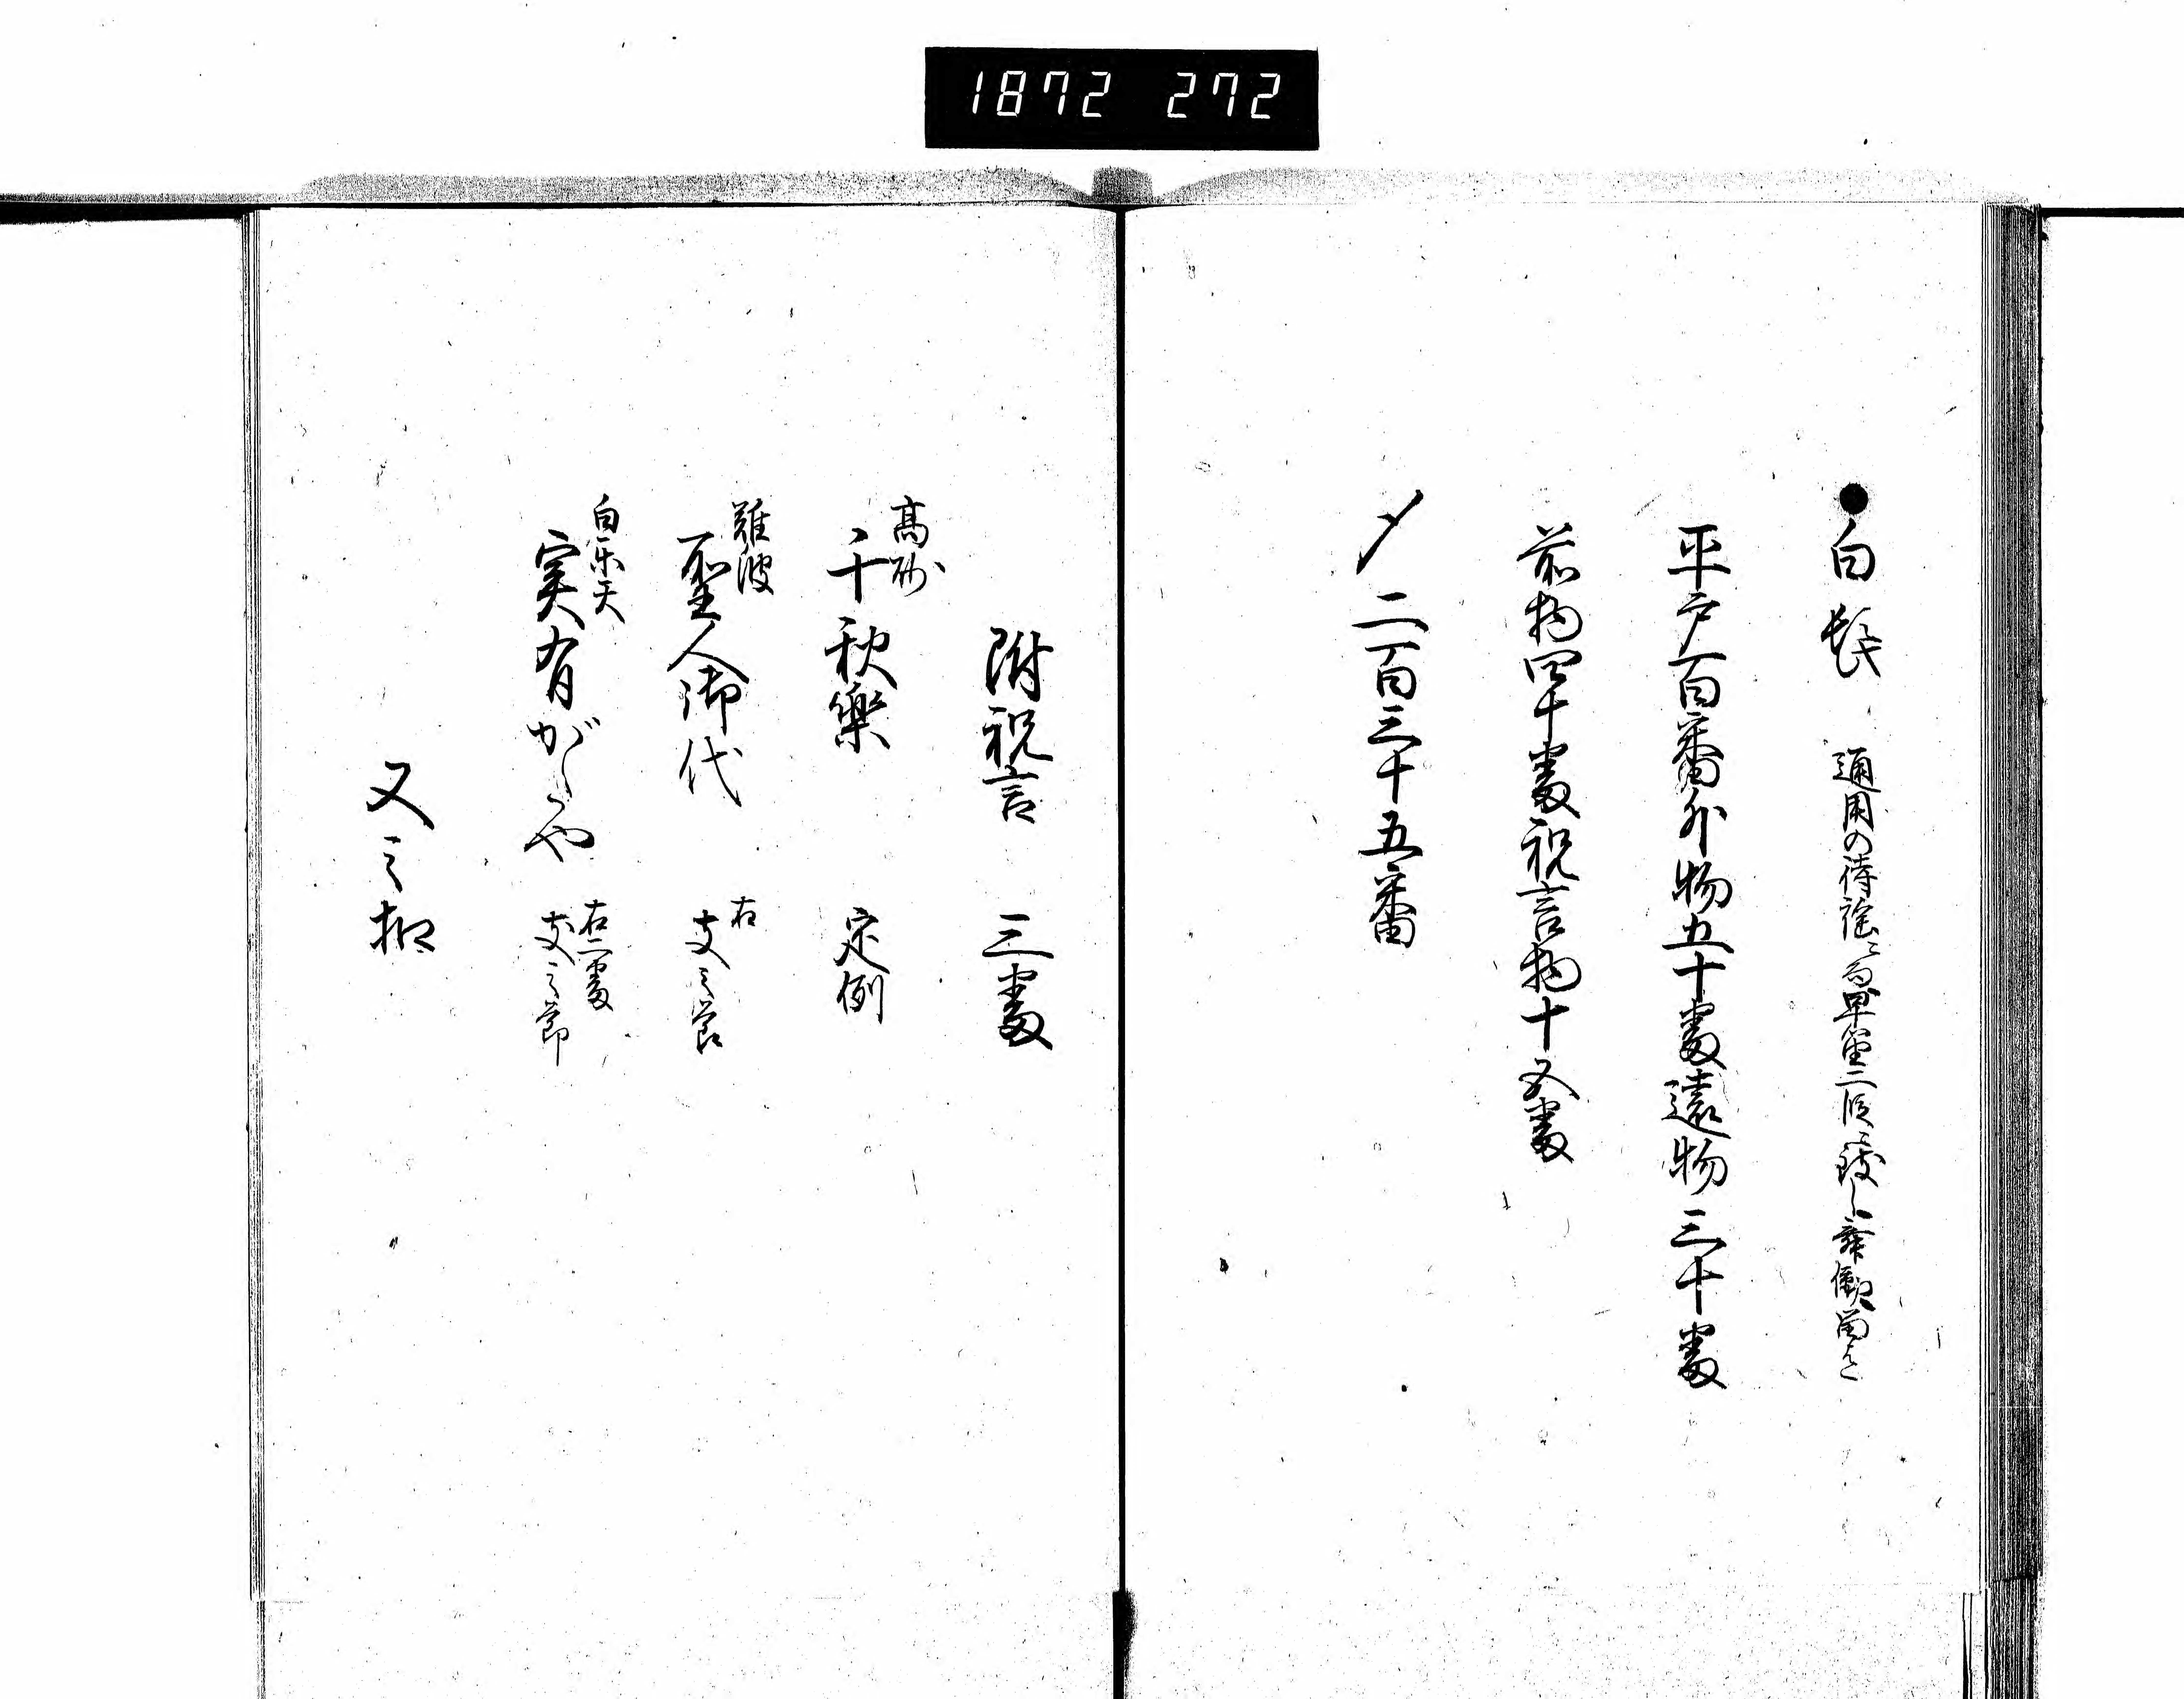 1872 272
●白髭 通用の待謡ニ而早笛二段 舞働留
平戸百番外物五十番遠物三十番
前物四十番祝言物十五番
〆二百三十五番
附祝言 三番
高砂
千秋樂 定例
難波
聖人御代 右支之節
白楽天
実有がたや 右二番支之節
又之